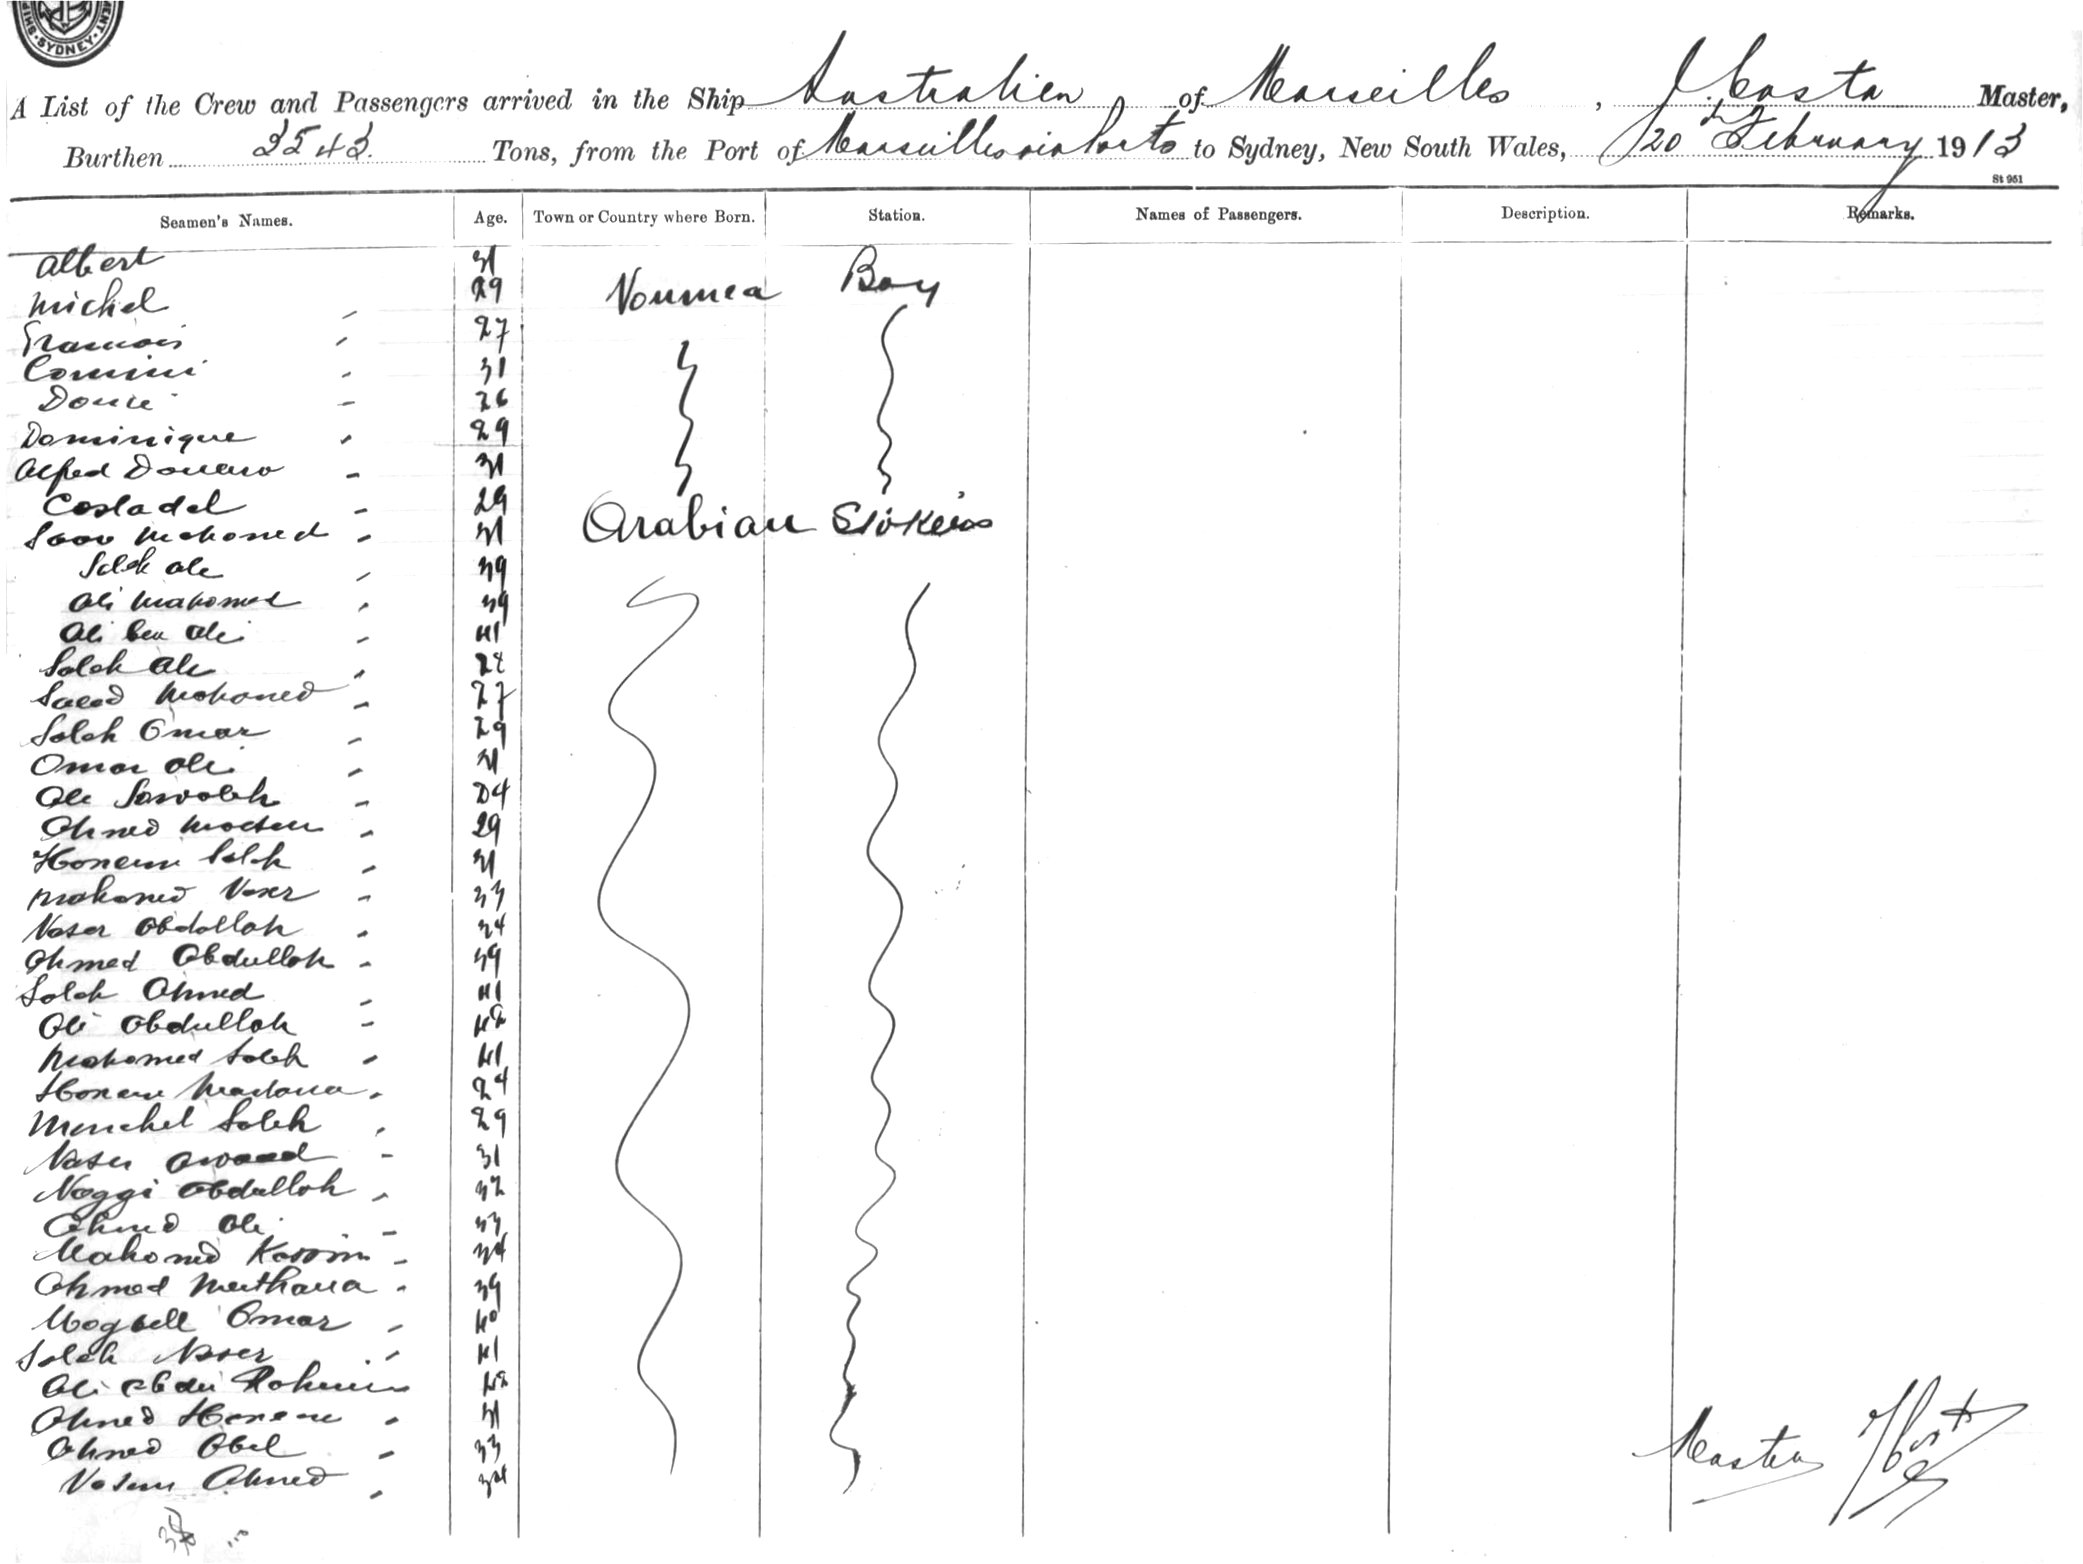 SYDNEY
A List of the Crew and Passengers arrived in the Ship Australien of Marseilles, J. Costa Master,
Burthen 3543. Tons, from the Port of Marseilles via Ports to Sydney, New South Wales, 20th February 1913
St 951
Seamen's Names. Age. Town or Country where Born. Station. Names of Passengers. Description. Remarks.
Albert 31
Michel " 29 Noumea Boy
Francois " 27
Comini " 31
Doui 26
Dominique " 29
Alfred 31
Costadel 29
Mohomed 31 Arabian Stokers
Saleh Ale 39
Ali Mahomed 39
Ali ben Ali 41
Saleh Ale 28
Saeed Mohomed 27
Saleh Omar 29
Omar Ali 31
Ale 34
Ahmed 29
Saleh 31
Mohomed Naser 33
Naser Abdallah 34
Ahmed Abdullah 39
Saleh Ahmed 41
Ali Abdullah 42
Mohomed Saleh 41
24
Saleh 29
Naser Awaad 31
Naggi Abdullah 32
Ahmed Ali 33
Mahomed Kassim 34
Ahmed Muthana 39
Mogbell Omar 40
Saleh Naser 41
Ali Abdu 42
Ahmed 31
Ahmed Obel 33
Ahmed 34
Master